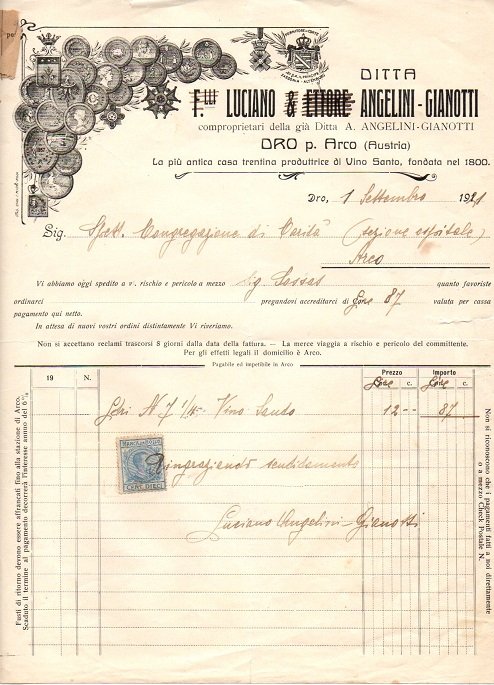 FORNITORE DI CORTE
DITTA
F.LLI LUCIANO & ETTORE ANGELINI-GIANOTTI
comproprietari della già Ditta A. ANGELINI-GIANOTTI
DRO p. Arco (Austria)
La più antica casa trentina produttrice di Vino Santo, fondata nel 1800.
Dro, 1 Settembre 1921
Sig. Spett. Congregazione di Carità (sezione ospitale)
Arco
Vi abbiamo oggi spedito a v/. rischio e pericolo a mezzo Sig. quanto favoriste
ordinarci pregandovi accreditarci di Lire 87 valuta per cassa
pagamento qui netto.
In attesa di nuovi vostri ordini distintamente Vi riveriamo.
Non si accettano reclami trascorsi 8 giorni dalla data della fattura. — La merce viaggia a rischio e pericolo del committente.
Per gli effetti legali il domicilio è Arco.
Pagabile ed impetibile in Arco
19 N. Prezzo Importo
Lire c. Lire c.
N. 7 Vino Santo 12 -- 87
MARCA DA BOLLO
CENT. DIECI
Ringraziando sentitamente
Luciano Angelini-Gianotti
Fusti di ritorno devono essere affrancati fino alla stazione di Arco.
Scaduto il termine al pagamento decorrerà l'interesse annuo del 6%
Non si riconoscono che i pagamenti fatti a noi direttamente
o a mezzo Check Postale N.